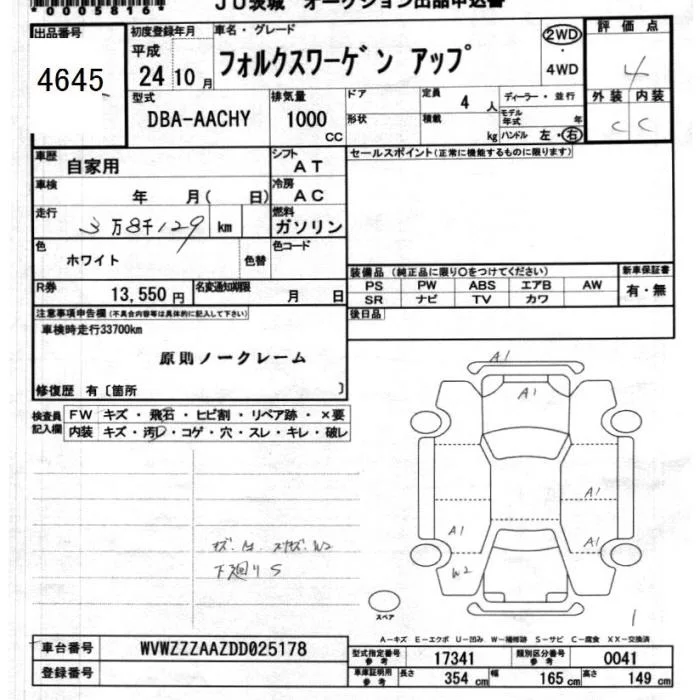 *0005816*
JU茨城 オークション出品申込書
出品番号
4645
初度登録年月
平成
24 10 月
車名・グレード
フォルクスワーゲン アップ
2WD
・
4WD
評価点
4
外装 内装
C C
型式
DBA-AACHY
排気量
1000
CC
ドア
形状
定員 4 人
積載 kg
ディーラー・並行
モデル年式 年
ハンドル 左・右
車歴
自家用
シフト
AT
セールスポイント(正常に機能するものに限ります)
車検
年 月( 日)
冷房
AC
走行
3万8千129 km
燃料
ガソリン
色
ホワイト
色替
色コード
R券
13,550 円
名変通知期限
月 日
装備品 (純正品に限り○をつけてください)
PS PW ABS エアB AW
SR ナビ TV カワ
新車保証書
有・無
後日品
注意事項申告欄(不具合内容等は具体的に記入して下さい)
車検時走行33700km
原則ノークレーム
修復歴 有〔箇所 〕
検査員記入欄
FW キズ・飛石・ヒビ割・リペア跡・×要
内装 キズ・汚レ・コゲ・穴・スレ・キレ・破レ
A1
A1
A1
A1
A1
W2
下廻りS
スペア
1
A-キズ E-エクボ U-凹み W-補修跡 S-サビ C-腐食 XX-交換済
車台番号
WVWZZZAAZDD025178
登録番号
型式指定番号参考
17341
類別区分番号参考
0041
車庫証明用参考
長さ 354 cm
幅 165 cm
高さ 149 cm